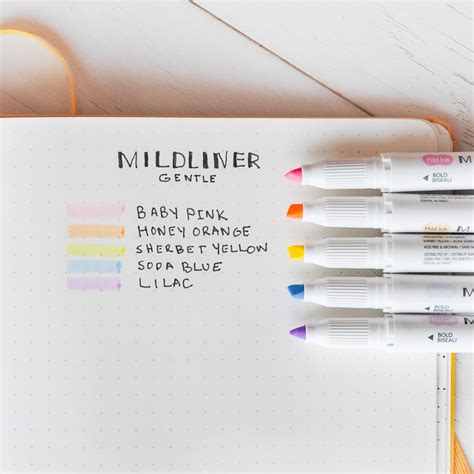 MILDLINER
GENTLE
BABY PINK
HONEY ORANGE
SHERBET YELLOW
SODA BLUE
LILAC
Mild Ink
M
BOLD
BISEAU
Mild Ink
M
BOLD
BISEAU